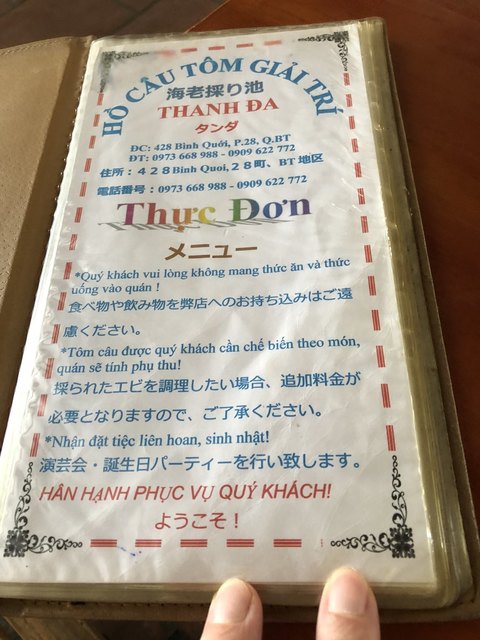 HỒ CÂU TÔM GIẢI TRÍ
海老採り池
THANH ĐA
タンダ
ĐC: 428 Bình Quới, P.28, Q.BT
ĐT: 0973 668 988 - 0909 622 772
住所：４２８Binh Quoi,２８町、BT 地区
電話番号：0973 668 988 - 0909 622 772
Thực Đơn
メニュー
*Quý khách vui lòng không mang thức ăn và thức
uống vào quán !
食べ物や飲み物を弊店へのお持ち込みはご遠
慮ください。
*Tôm câu được quý khách cần chế biến theo món,
quán sẽ tính phụ thu!
採られたエビを調理したい場合、追加料金が
必要となりますので、ご了承ください。
*Nhận đặt tiệc liên hoan, sinh nhật!
演芸会・誕生日パーティーを行い致します。
HÂN HẠNH PHỤC VỤ QUÝ KHÁCH!
ようこそ！